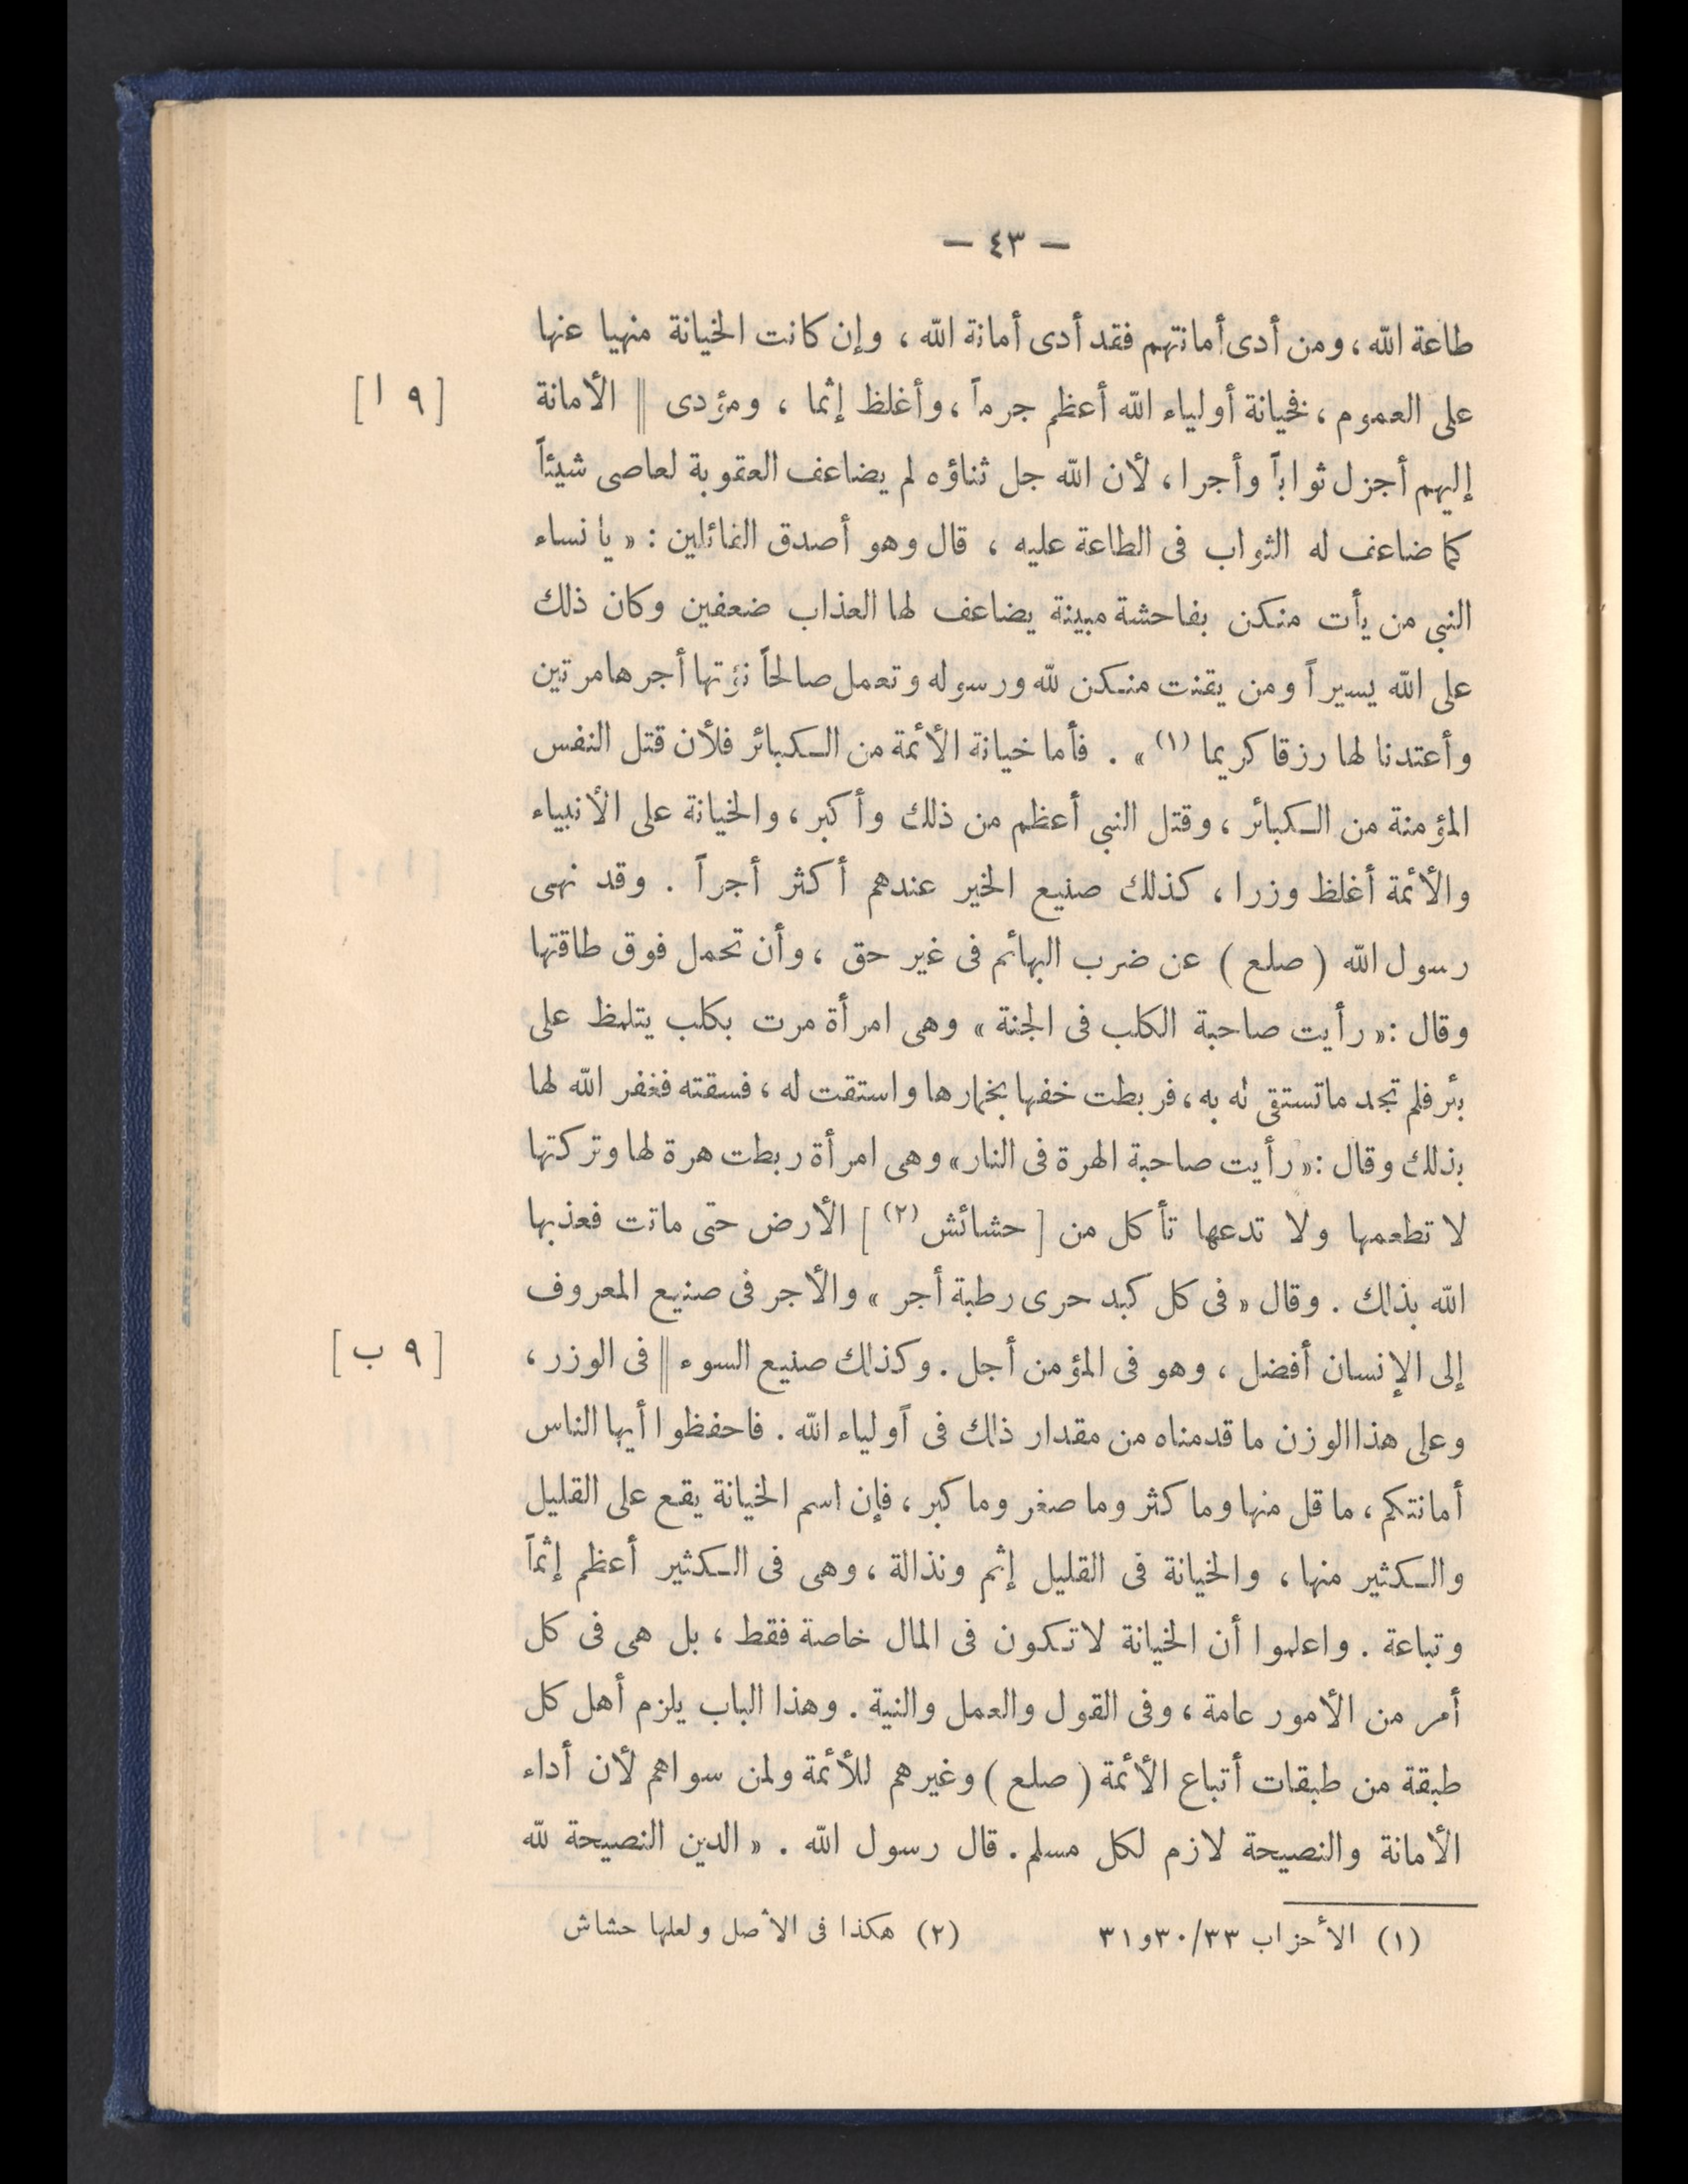 — ٤٣ —
طاعة الله ، ومن أدى أمانتهم فقد أدى أمانة الله ، وإن كانت الخيانة منهيا عنها
على العموم ، فخيانة أولياء الله أعظم جرماً ، وأغلظ إثما ، ومؤدى || الأمانة [ ٩ ا ]
إليهم أجزل ثواباً وأجرا ، لأن الله جل ثناؤه لم يضاعف العقوبة لعاصى شيئاً
كما ضاعف له الثواب فى الطاعة عليه ، قال وهو أصدق القائلين : « يا نساء
النبى من يأت منكن بفاحشة مبينة يضاعف لها العذاب ضعفين وكان ذلك
على الله يسيراً ومن يقنت منكن لله ورسوله وتعمل صالحاً نؤتها أجرها مرتين
وأعتدنا لها رزقا كريما (١) » . فأما خيانة الأئمة من الكبائر فلأن قتل النفس
المؤمنة من الكبائر ، وقتل النبى أعظم من ذلك وأكبر ، والخيانة على الأنبياء
والأئمة أغلظ وزرا ، كذلك صنيع الخير عندهم أكثر أجراً . وقد نهى
رسول الله ( صلع ) عن ضرب البهائم فى غير حق ، وأن تحمل فوق طاقتها
وقال : « رأيت صاحبة الكلب فى الجنة » وهى امرأة مرت بكلب يتلمظ على
بئر فلم تجد ما تستقى له به ، فربطت خفها بخمارها واستقت له ، فسقته فغفر الله لها
بذلك وقال : « رأيت صاحبة الهرة فى النار » وهى امرأة ربطت هرة لها وتركتها
لا تطعمها ولا تدعها تأكل من [ حشائش (٢) ] الأرض حتى ماتت فعذبها
الله بذلك . وقال « فى كل كبد حرى رطبة أجر » والأجر فى صنيع المعروف
إلى الإنسان أفضل ، وهو فى المؤمن أجل . وكذلك صنيع السوء || فى الوزر ، [ ٩ ب ]
وعلى هذا الوزن ما قدمناه من مقدار ذلك فى أولياء الله . فاحفظوا أيها الناس
أمانتكم ، ما قل منها وما كثر وما صغر وما كبر ، فإن اسم الخيانة يقع على القليل
والكثير منها ، والخيانة فى القليل إثم ونذالة ، وهى فى الكثير أعظم إثماً
وتباعة . واعلموا أن الخيانة لا تكون فى المال خاصة فقط ، بل هى فى كل
أمر من الأمور عامة ، وفى القول والعمل والنية . وهذا الباب يلزم أهل كل
طبقة من طبقات أتباع الأئمة ( صلع ) وغيرهم للأئمة ولمن سواهم لأن أداء
الأمانة والنصيحة لازم لكل مسلم . قال رسول الله . « الدين النصيحة لله
(١) الأحزاب ٣٠/٣٣و٣١ (٢) هكذا فى الأصل ولعلها حشاش